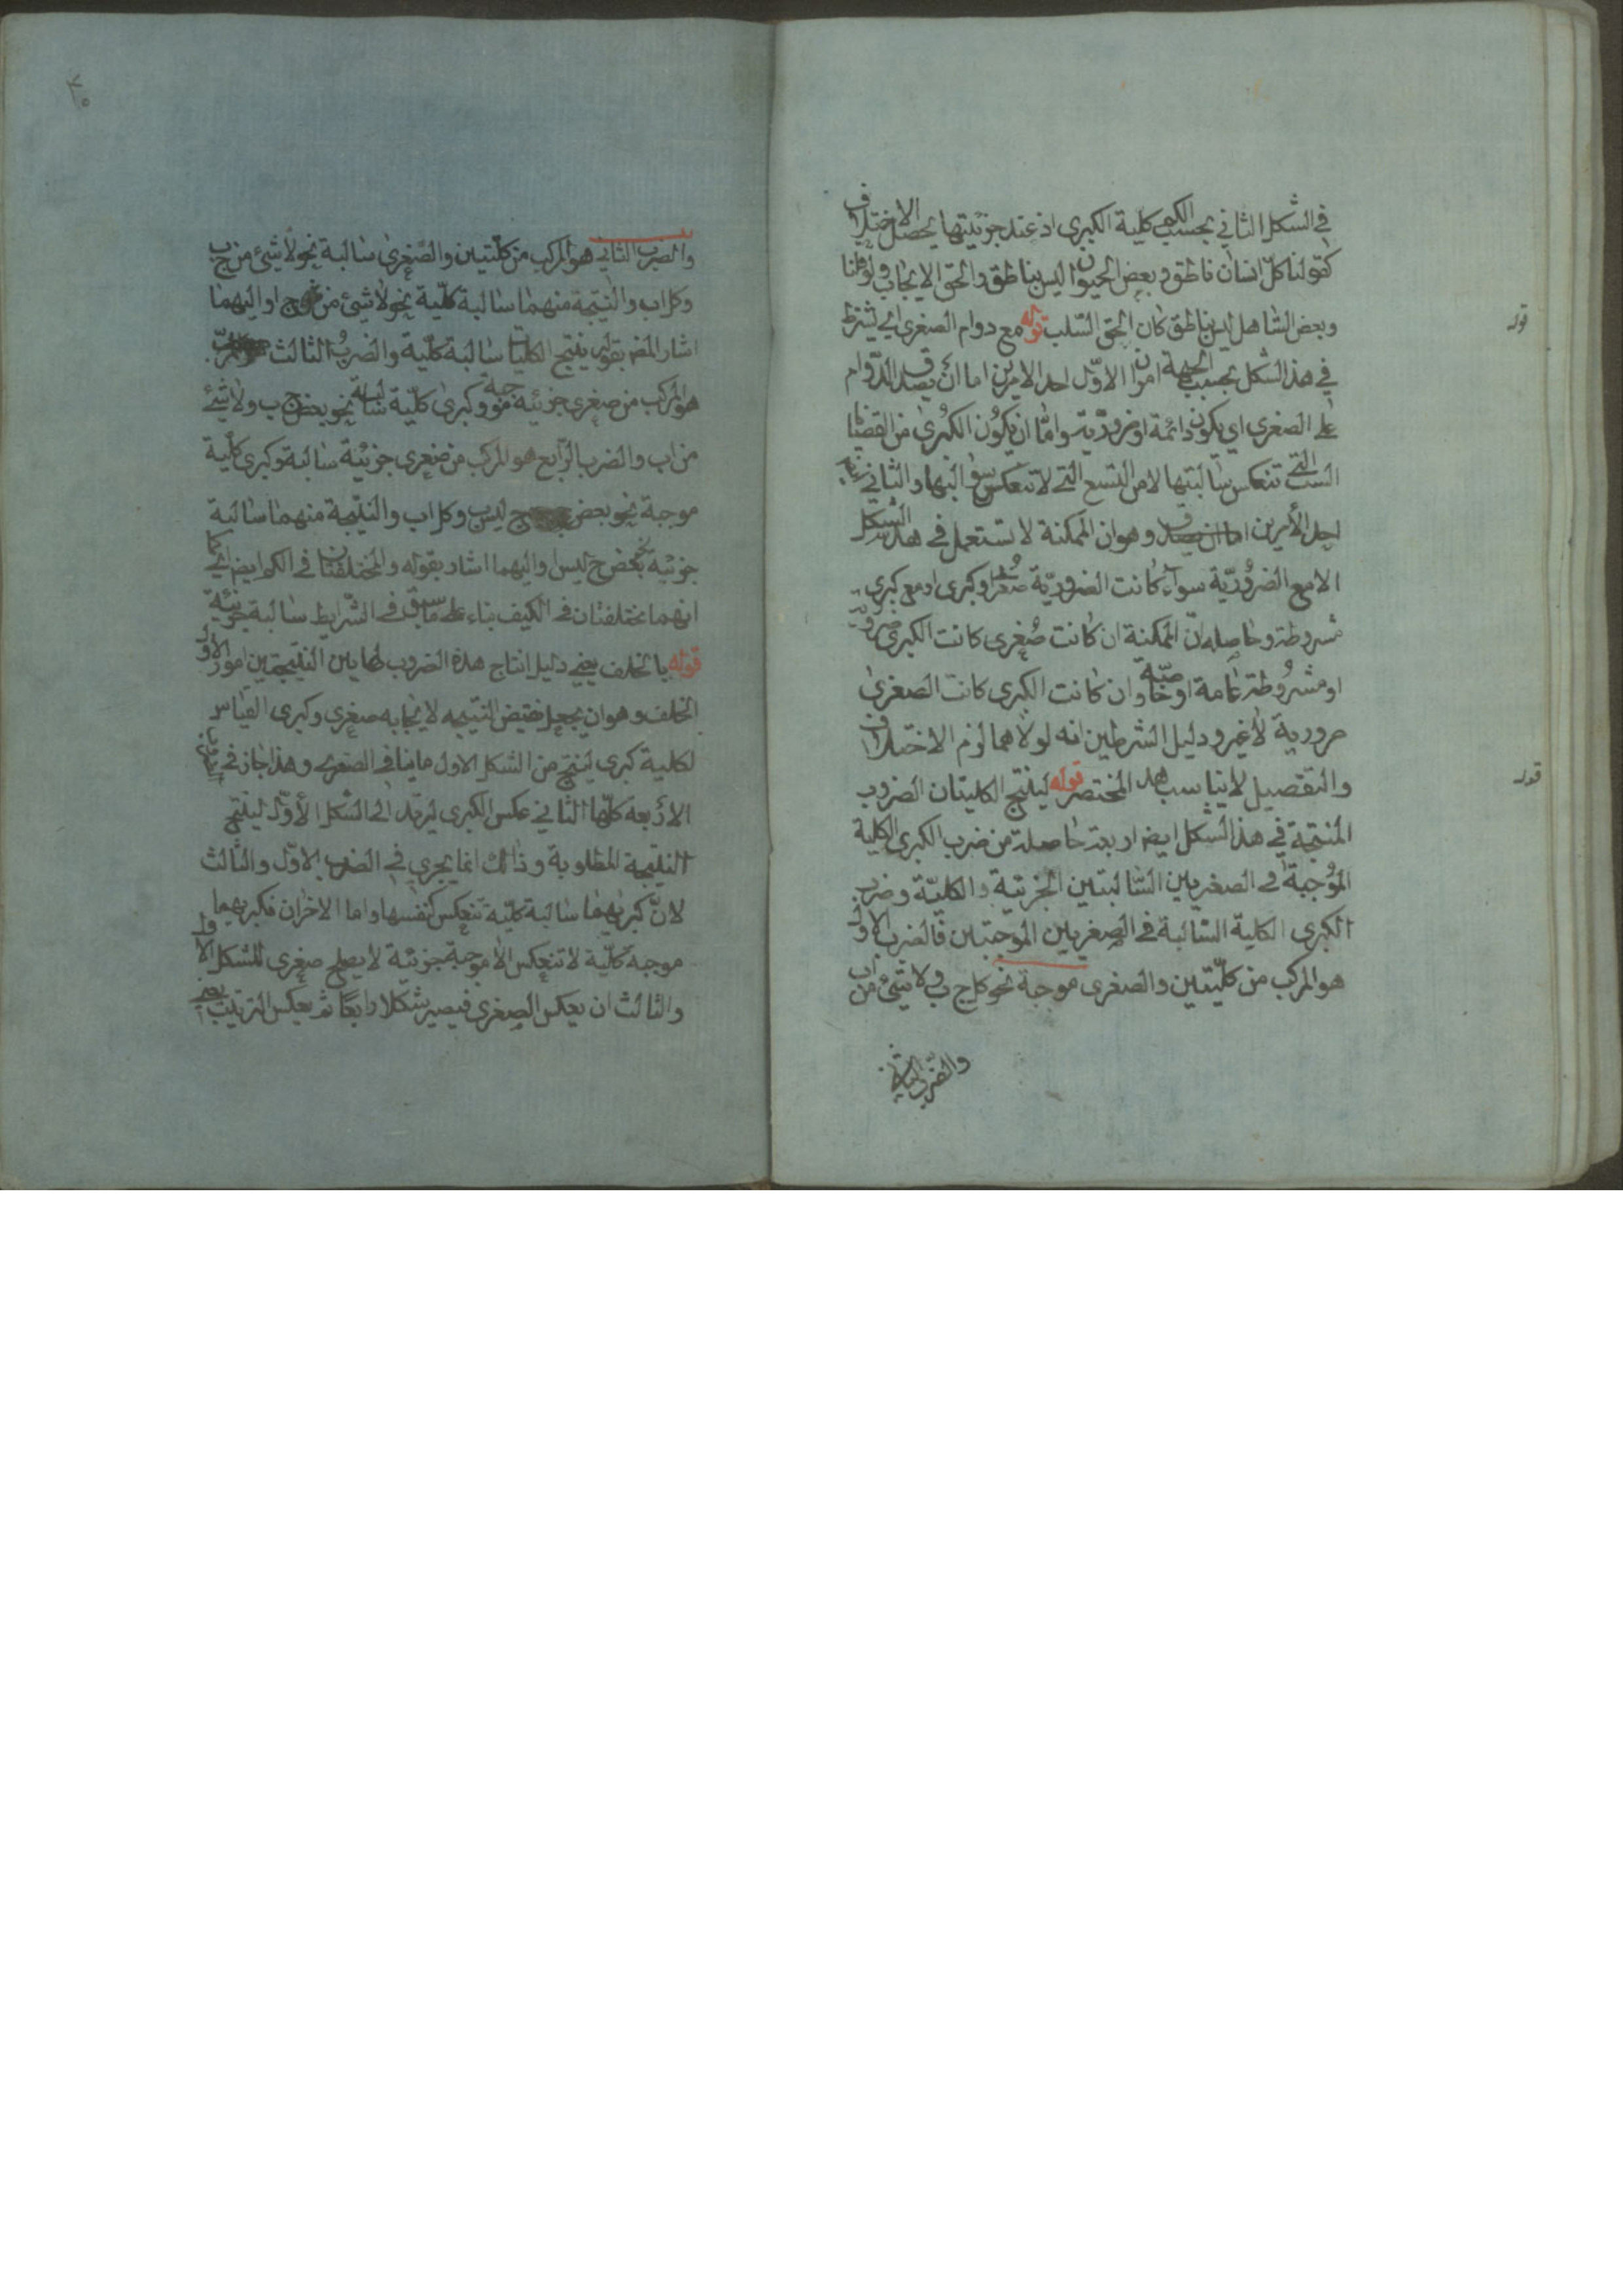 في الشكل الثاني بحسب الكم كلية الكبرى اذ عند جزئيتها يحصل الاختلاف
كقولنا كل انسان ناطق وبعض الحيوان ليس بناطق والحق الايجاب ولو قلنا
وبعض الشاهل ليس بناطق كان الحق السلب قوله مع دوام الصغرى اي يشترط
قوله
في هذا الشكل بحسب الجهة امران الاوّل احد الامرين اما ان يصدق الدّوام
على الصغرى اي يكون دائمة او ضروريّة واما ان يكون الكبرى من القضايا
الست التي تنعكس سالبتها لا من التسع التي لا تنعكس سوالبها والثاني
احد الأمرين وهو ان الممكنة لا تستعمل في هذا الشكل
الا مع الضروريّة سواء كانت الضروريّة صغرى او كبرى او مع كبرى
مشروطة وحاصله انّ الممكنة ان كانت صغرى كانت الكبرى ضرورية
او مشروطة عامة او خاصّة وان كانت الكبرى كانت الصغرى
ضرورية لا غير ودليل الشرطين انه لولاهما لزم الاختلاف
والتفصيل لا يناسب هذا المختصر قوله لينتج الكليتان الضروب
قوله
المنتجة في هذا الشكل ايض اربعة حاصلة من ضرب الكبرى الكلية
الموجبة في الصغريين السالبتين الجزئية والكليّة وضرب
الكبرى الكلية السّالبة في الصغريين الموجبتين فالضرب الاول
هو المركب من كلّيتين والصغرى موجبة نحو كل ج ب ولا شئ من اب
والضرب الثاني
والضرب الثاني هو المركب من كلّيتين والصّغرى سالبة نحو لا شئ من ج ب
وكل اب والنتيجة منهما سالبة كلّية نحو لا شئ من ج ا واليهما
اشار المض بقوله لينتج الكليتان سالبة كلّية والضرب الثالث
هو المركب من صغرى جزئية موجبة وكبرى كلّية سالبة نحو بعض ج ب ولا شئ
من اب والضرب الرابع هو المركب من صغرى جزئية سالبة وكبرى كلّية
موجبة نحو بعض ج ليس ب وكل اب والنتيجة منهما سالبة
جزئية نحو بعض ج ليس ا واليهما اشار بقوله والمختلفتان في الكم ايض اي كما
انهما مختلفتان في الكيف بناء على ما سبق في الشرايط سالبة جزئية
قوله بالخلف يعني دليل انتاج هذه الضروب لهاتين النتيجتين امور الاول
الخلف وهو ان يجعل نقيض النتيجه لايجابه صغرى وكبرى القياس
لكلية كبرى لينتج من الشكل الاول ما ينافي الصغرى وهذا جاز في
الاربعة كلّها الثاني عكس الكبرى ليرتد الى الشكل الأوّل لينتج
النتيجة المطلوبة وذالك انما يجري في الضرب الاوّل والثالث
لانّ كبريهما سالبة كلّية تنعكس كنفسها واما الاخران فكبريهما
موجبة كلّية لا تنعكس الا موجبة جزئية لا يصلح صغرى للشكل الاول
والثالث ان يعكس الصغرى فيصير شكلا رابعًا ثم يعكس الترتيب يعني